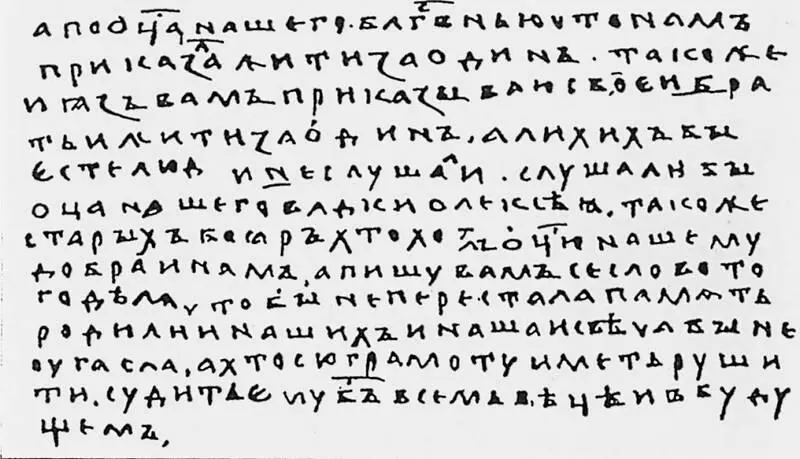 а по оц҃а нашего · блг҃вⷭ҇нью что намъ
приказаⷧ҇ жити за одинъ · такоже
и ꙗзъ вамъ приказываю своеи бра
тьи жити за о́динъ · а лихихъ бы
єсте люд и не слушаⷧ҇и · слушали бы
оц҃а нашего влдки олексѣꙗ · такоже
старыхъ боꙗръ хто хотѣлъ оц҃ю нашему
добра и намъ · а пишу вамъ се слово то
го дѣлѧ что бы не перестала памѧть
родилии нашихъ и наша и свѣча бы не
оугасла · а хто сю грамоту иметь руши
ти · судить єму бъ҃ в семь вѣцѣ и в буду
щемъ ·